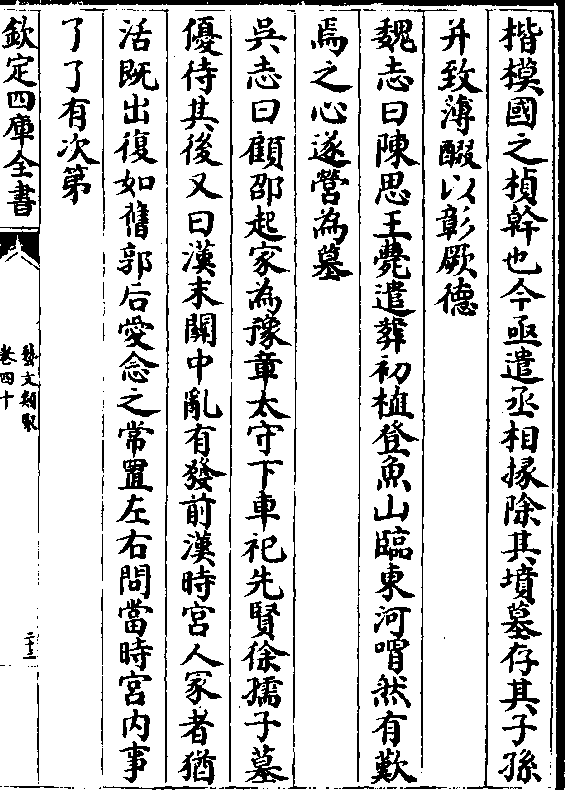 楷模國之楨幹也今亟遣丞相掾除其墳墓存其子孫
并致薄醊以彰厥德
魏志曰陳思王薨遣葬初植登魚山臨東河喟然有歎
焉之心遂營為墓
吳志曰顧邵起家為豫章太守下車祀先賢徐孺子墓
優待其後又曰漢末關中亂有發前漢時宮人冢者猶
活既出復如舊郭后愛念之常置左右問當時宮内事
了了有次第
欽定四庫全書
藝文類聚
卷四十
二十三